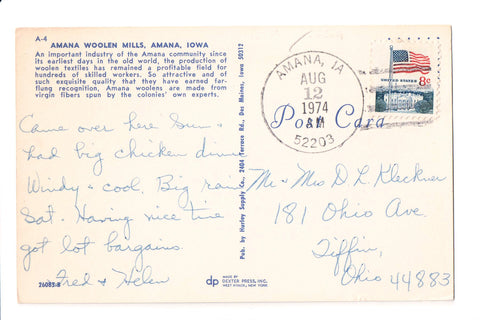 A-4
AMANA WOOLEN MILLS, AMANA, IOWA
An important industry of the Amana community since
its earliest days in the old world, the production of
woolen textiles has remained a profitable field for
hundreds of skilled workers. So attractive and of
such exquisite quality that they have earned far-
flung recognition, Amana woolens are made from
virgin fibers spun by the colonies' own experts.
Came over here Sun -
had big chicken dinner
Windy & cool. Big rain
Sat. Having nice time
got lot bargains.
Fred & Helen
26083-B
Pub. by Hurley Supply Co. 2404 Terrace Rd., Des Moines, Iowa 50312
dp
MADE BY
DEXTER PRESS, INC.
WEST NYACK, NEW YORK
AMANA, IA
AUG
12
1974
52203
UNITED STATES 8c
Post Card
Mr & Mrs D L Kleckner
181 Ohio Ave.
Tiffin,
Ohio 44883